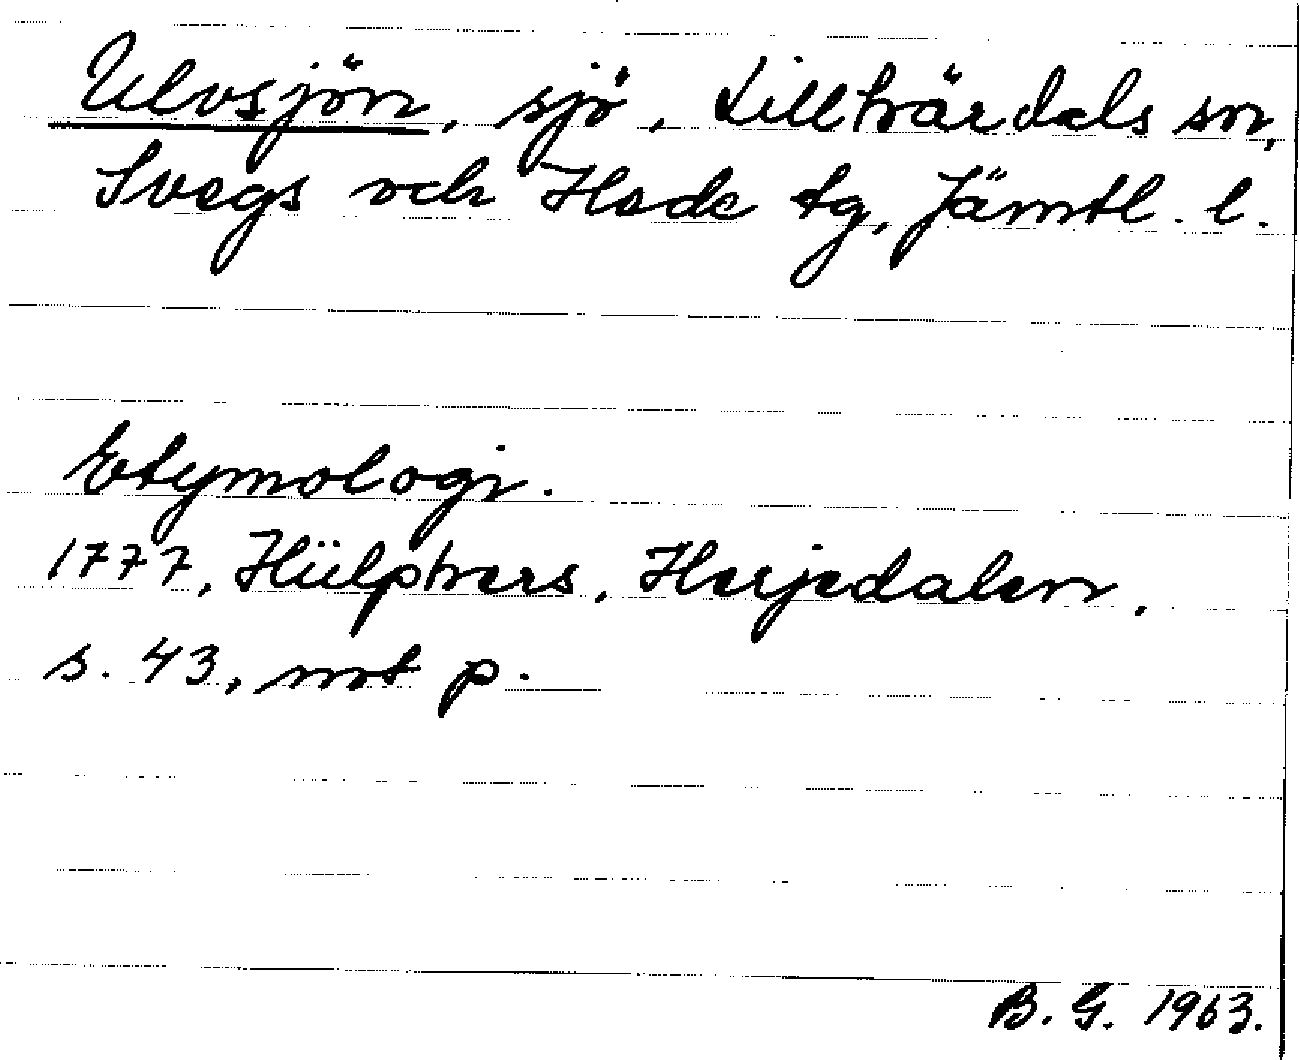 Ulvsjön, sjö, Lillhärdals sn,
Svegs och Hede tg, Jämtl. l.
Etymologi.
1777, Hülphers, Herjedalen,
s. 43, not p.
B. G. 1963.